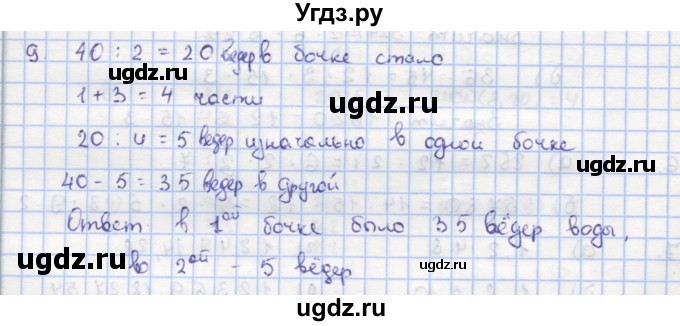 Угдз.ру
9. 40 : 2 = 20 ведер в бочке стало
ugdz.ru ugdz.ru
1 + 3 = 4 части
20 : 4 = 5 ведер изначально в одной бочке
40 - 5 = 35 ведер в другой
ugdz.ru ugdz.ru
Ответ в 1ой бочке было 35 вёдер воды,
во 2ой - 5 вёдер
ugdz.ru ugdz.ru ugdz.ru